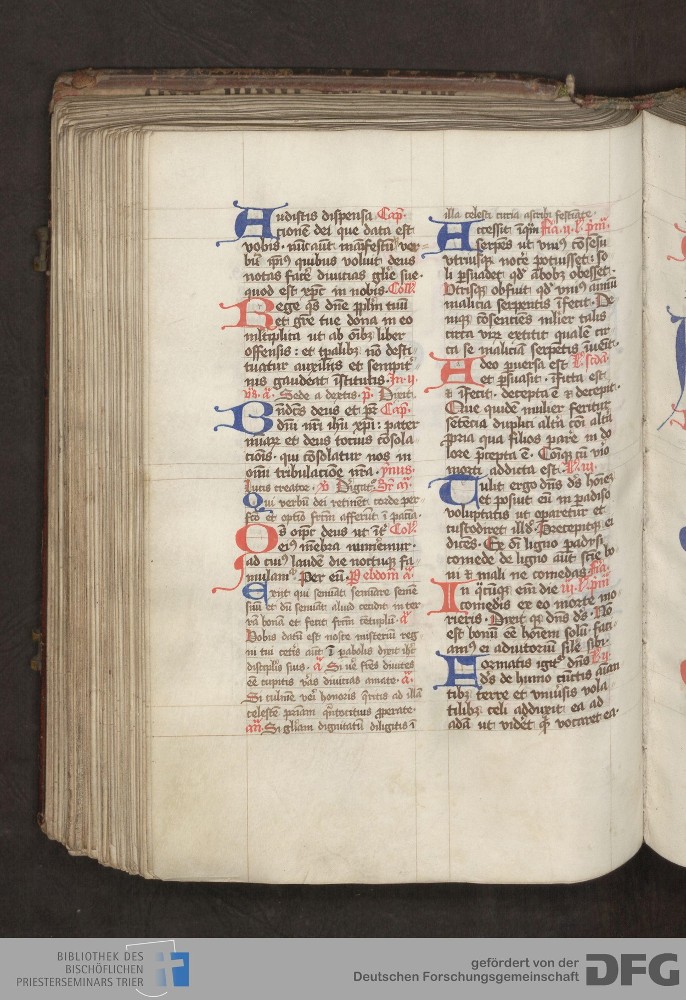 Audistis dispensa Cap̄.
tionē dei que data est
vobis. nūc aūt manifestū ver
bū ip̄ius quibus voluit deus
notas facē divitias gl̄ie sue.
quod est xp̄c in nobis. Coll̄.
Rege q̄s dn̄e pp̄lm tuū
et gr̄e tue dona in eo
ml̄tiplica ut ab oībꝫ liber
offensis : et tp̄alibꝫ nō desti
tuatur auxiliis et sempit̄
nis gaudeat īstitutis. In ii
vs̄. a. Sede a dextis. p̄. Dixit.
Bn̄dcūs deus et pr̄ Cap̄.
dn̄i nr̄i ihū xp̄i : pater
mīaꝝ et deus totius cōsola
tionis. qui cōsolatur nos in
omī tribulatione nr̄a. ymus.
Lucis creator. v̄
Qui verbū dei retinēt corde per
fcō et optīo frc̄m afferūt ī paciā.
Os oīpc̄ deus ut īt̄ Coll̄.
eiꝰ mēbra numemur.
ad cuiꝰ laudē die noctuqꝫ fa
mulamꝰ. Per eū. Febdom̄ a.
Exiit qui semīat semīare semē
suū et dū semīat aliud cecidit in ter
rā bonā et fecit frc̄m cētuplū. a.
Vobis datū est nosse misteriū reg
ni dei cetis aūt ī pabolis dixit ihc̄
discipl̄is suis. a. Si vē frēs divites
eē cupitis vas divitias amate. a.
Si culmē veī honoris q̄ritis ad illā
celestē patriam q̄ntocitius ꝓperate.
an̄. Si gl̄iam dignitatū diligitis ī
illa celesti curia ascribi festīate.
Accessit īqm̄ fīa. ii. l̄. pīm̄.
serpēs ut vniꝰ cōsēsu
vtriusqꝫ nocē potuisset : so
li psuadet qd̄ ābobꝫ obesset.
Utrisqꝫ obfuit qd̄ vniꝰ animū
malicia serpentis īfecit. De
niqꝫ cōsenciēs mlier talis
circa virꝝ extitit qualē cir
ca se maliciā serpētis īvēit.
Adeo pversa est l̄c̄. scd̄a.
et psuasit. īfcā est
et īfecit. decepta ē et decepit.
Que quidē mulier feritur
setēcia dupl̄i altā cōt̄ altā
ꝓpria qua filios parē in do
lore p̄cepta ē. Cōiqꝫ cū vīo
morti addicta est. l̄. iii.
Tulit ergo dn̄s dꝰs hōiem
et posuit eū in padiso
voluptatis ut oparetur et
custodiret illū. Precepitqꝫ ei
dicēs. Ex oī ligno padysi
comede de ligno aūt scīe bo
ni et mali ne comedas. fīa.
In q̄cūqꝫ eīm die iii. l̄. pīm̄
comedis ex eo morte mo
rieris. Dixit qꝫ dn̄s dꝰs. Nō
est bonū eē hōiem solū. faci
amꝰ ei adiutoriū sīle sibi.
Formatis igit̄ dn̄s l̄. ii.
dꝰs de humo cūctis aīan
tibꝫ terre et vniūsis vola
tilibꝫ celi adduxit ea ad
adā ut vidēt qꝫ vocaret ea.
BIBLIOTHEK DES
BISCHÖFLICHEN
PRIESTERSEMINARS TRIER
gefördert von der
Deutschen Forschungsgemeinschaft
DFG